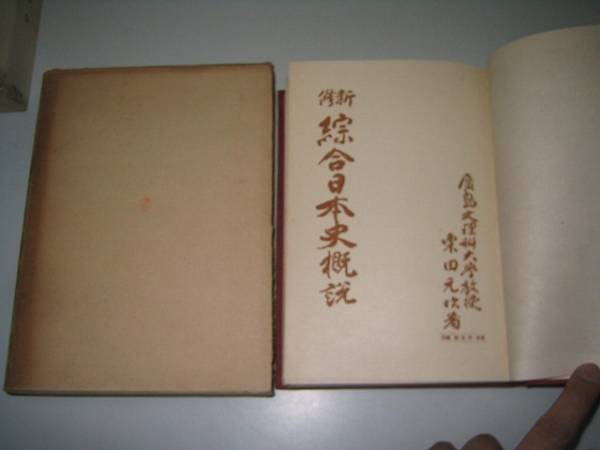 新修
綜合日本史概説
廣島文理科大學教授
栗田元次著